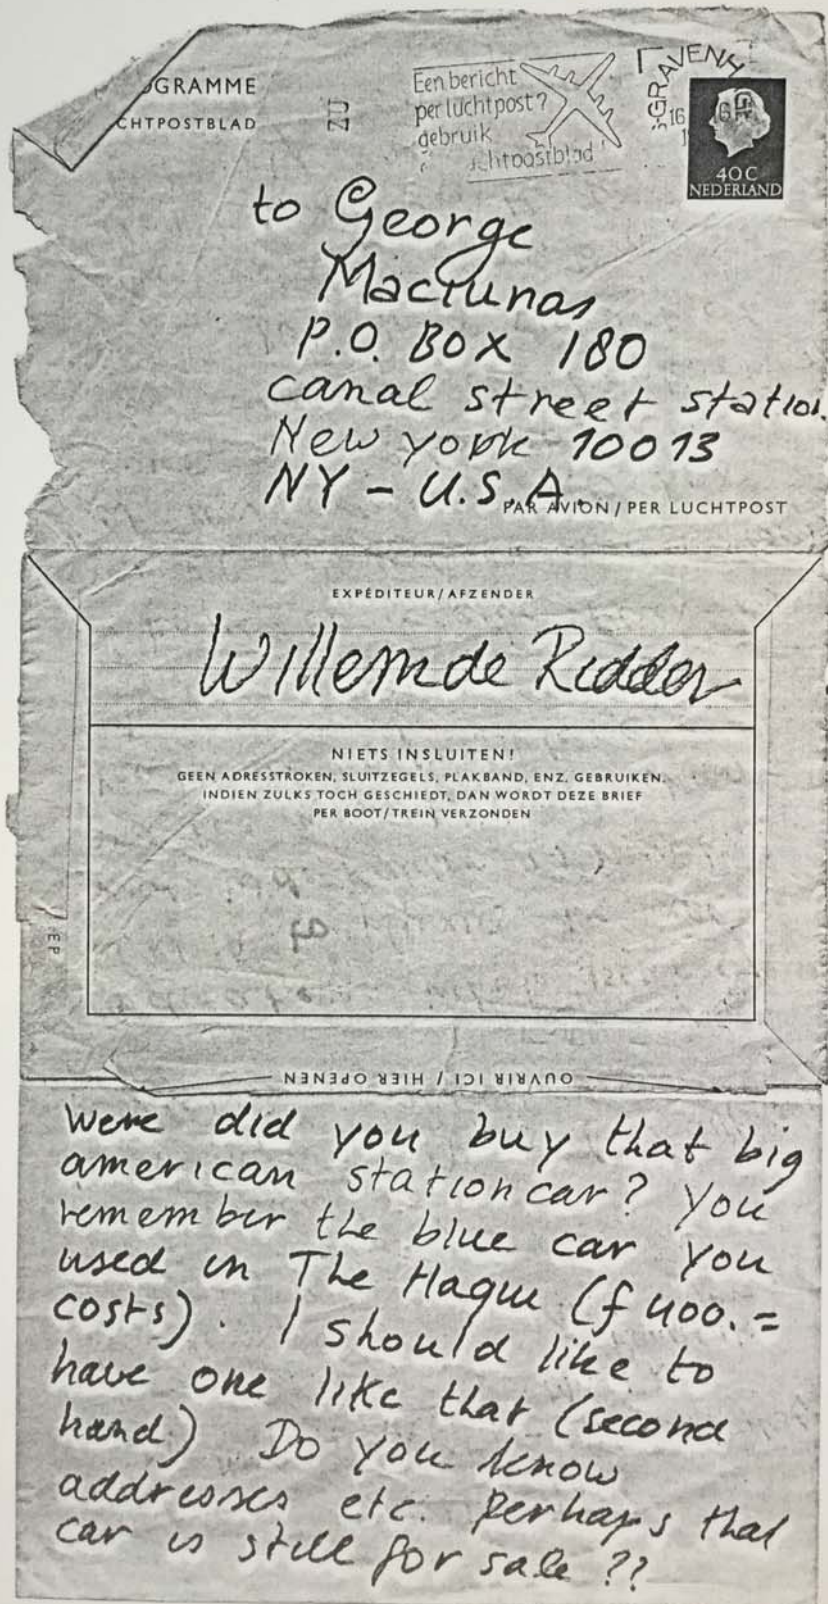 OGRAMME
CHTPOSTBLAD
Een bericht
per luchtpost?
gebruik
chtpostblad'
'SGRAVENH
16
40C
NEDERLAND
to George
Maciunas
P.O. BOX 180
canal street station
New york 10013
NY - U.S.A.
PAR AVION / PER LUCHTPOST
EXPÉDITEUR/AFZENDER
Willem de Ridder
NIETS INSLUITEN!
GEEN ADRESSTROKEN, SLUITZEGELS, PLAKBAND, ENZ. GEBRUIKEN.
INDIEN ZULKS TOCH GESCHIEDT, DAN WORDT DEZE BRIEF
PER BOOT/TREIN VERZONDEN
EP
OUVRIR ICI / HIER OPENEN
Were did you buy that big
american station car? You
remember the blue car you
used in The Hague (f 400.=
costs). I should like to
have one like that (second
hand) Do you know
addresses etc. Perhaps that
car is still for sale ??